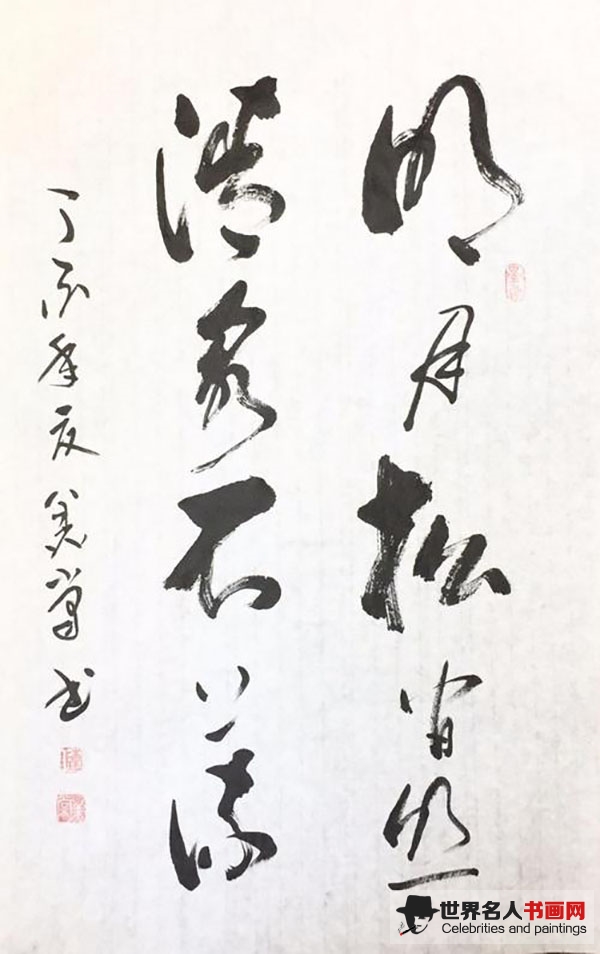 明月松間照
清泉石上流
丁酉年夏美书
世界名人书画网
Celebrities and paintings